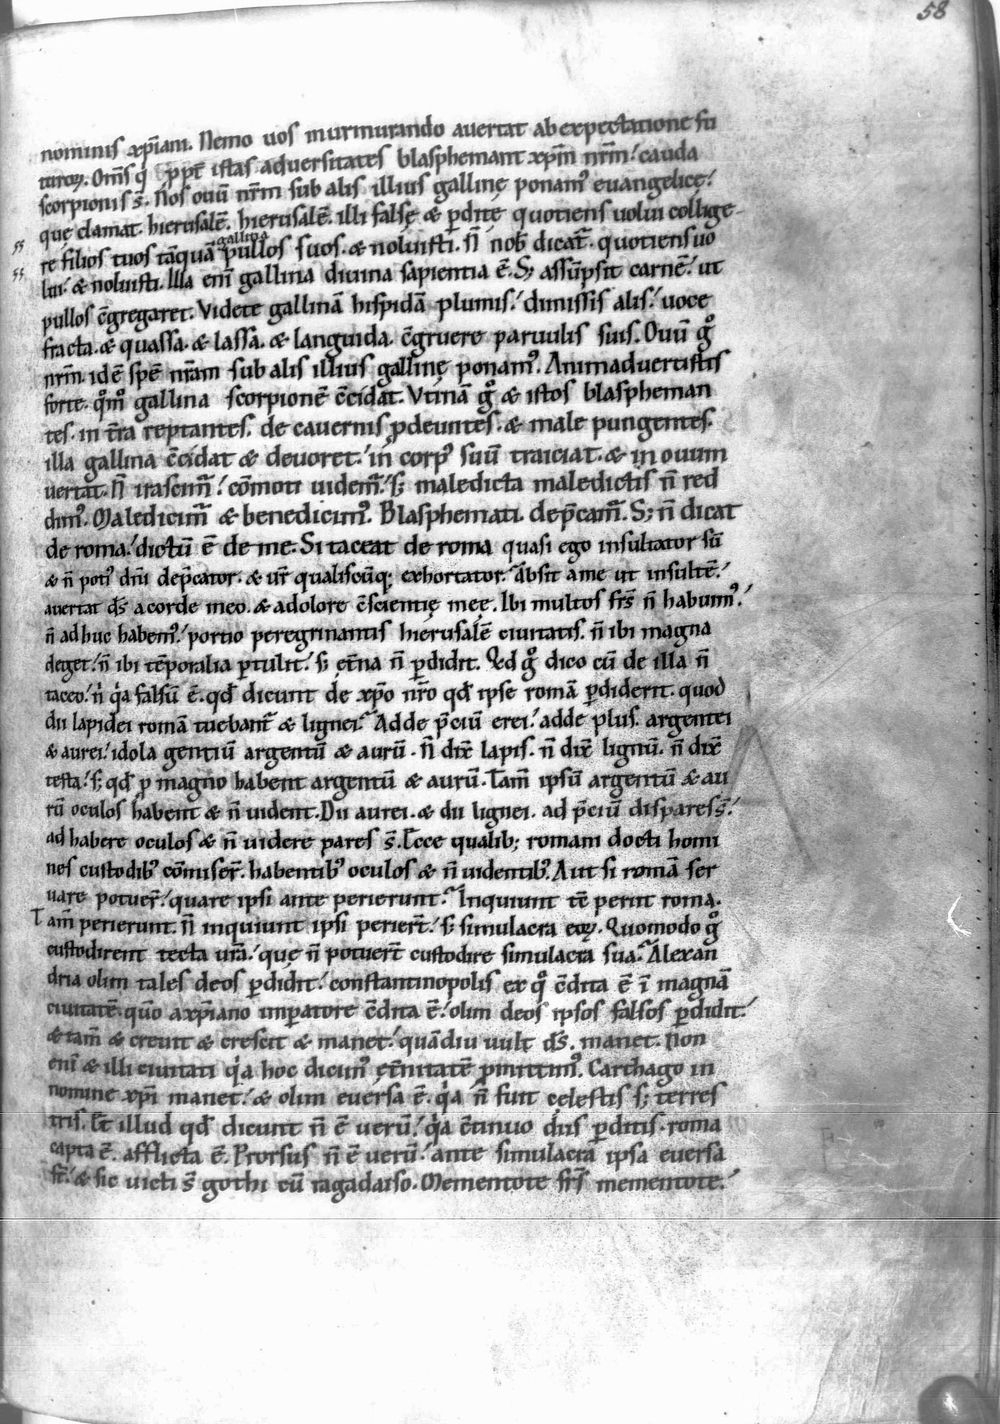 58
nominis xp̄iani. Nemo uos murmurando auertat ab expectatione fu
turoꝝ. Om̄s q̇ ꝓpt̄ istas aduersitates blasphemant xp̄m nr̄m: cauda
scorpionis s̄. Nos ouū nr̄m sub alis illius gallinę ponamꝰ euangelicę:
quę clamat. hierusalē. hierusalē. illi falsę & ꝑditę quotiens uolui collige-
re filios tuos tāquā gallina pullos suos. & noluisti. N̄ nob̄ dicat̄. quotiens uo
lui: & noluisti. Illa eni̅ gallina diuina sapientia ē. S; assūpsit carnē: ut
pullos c̄gregaret. Videte gallinā hispidā plumis: dimissis alis: uoce
fracta. & quassa. & lassa. & languida. c̄gruere paruulis suis. Ouū gͦ
nr̄m. idē spē nr̄am sub alis illius gallinę ponamꝰ. Animaduertistis
forte. qͦmͦ gallina scorpionē c̄cidat. Vtinā gͦ & istos blaspheman
tes. in t̄ra reptantes. de cauernis ꝓdeuntes. & male pungentes.
illa gallina c̄cidat & deuoret: in corpꝰ suū traiciat. & in ouum
uertat. N̄ irascim̄: cōmoti uidem̄: s; maledicta maledictis n̄ red
dimꝰ. Maledicim̄ & benedicimꝰ. Blasphemati. dep̄cam̄. S; n̄ dicat
de roma: dictū ē de me. Si taceat de roma quasi ego insultator sū
& n̄ potiꝰ dn̄i dep̄cator. & ur̄ qualiscūq; exhortator. Absit a me ut insultē:
auertat ds̄ a corde meo. & a dolore c̄scientię meę. Ibi multos fr̄s n̄ habuimꝰ:
n̄ adhuc habemꝰ: portio peregrinantis hierusalē ciuitatis. n̄ ibi magna
deget: n̄ ibi tēporalia ꝑtulit: s; et̄na n̄ ꝑdidit. Qd gͦ dico cū de illa n̄
taceo: n̄ q̇a falsū ē. qd̄ dicunt de xp̄o nr̄o qd̄ ipse romā ꝑdiderit. quod
dii lapidei romā tuebant̄ & lignei. Adde p̄ciū erei: adde plus. argentei
& aurei: idola gentiū argentū & aurū. n̄ dix̄ lapis. n̄ dix̄ lignū. n̄ dix̄
testa: s; qd̄ ꝓ magno habent argentū & aurū. Tam̄ ipsū argentū & au
rū oculos habent & n̄ uident. Dii aurei. & dii lignei. ad p̄ciū dispares s̄:
ad habere oculos & n̄ uidere pares s̄. Ecce qualib; romani docti homi
nes custodibꝰ cōmiser̄. habentibꝰ oculos & n̄ uidentibꝰ. Aut si romā ser
uare potuer̄: quare ipsi ante perierunt. Inquiunt tc̄ periit roma.
Tam̄ perierunt. N̄ inquiunt ipsi perier̄t: s; simulacra eoꝝ. Quomodo gͦ
custodirent tecta ur̄a: que n̄ potuer̄t custodire simulacra sua. Alexan
dria olim tales deos ꝑdidit: constantinopolis ex qͦ c̄dita ē ī magnā
ciuitatē. qūo a xp̄iano imꝑatore c̄dita ē: olim deos ipsos falsos ꝑdidit:
& tam̄ & creuit & crescit & manet: quādiu uult ds̄. manet. Non
eni̅ & illi ciuitati q̇a hoc dicimꝰ et̄nitatē ꝓmittimꝰ. Carthago in
nomine xp̄i manet: & olim euersa ē. q̇a n̄ fuit celestis s; terres
tris. Et illud qd̄ dicunt n̄ ē uerū: q̇a c̄tinuo diis ꝑditis. roma
capta ē. afflicta ē. Prorsus n̄ ē uerū: ante simulacra ipsa euersa
st̄: & sic uicti s̄ gothi cū ragadaiso. Mementote fr̄s mementote: